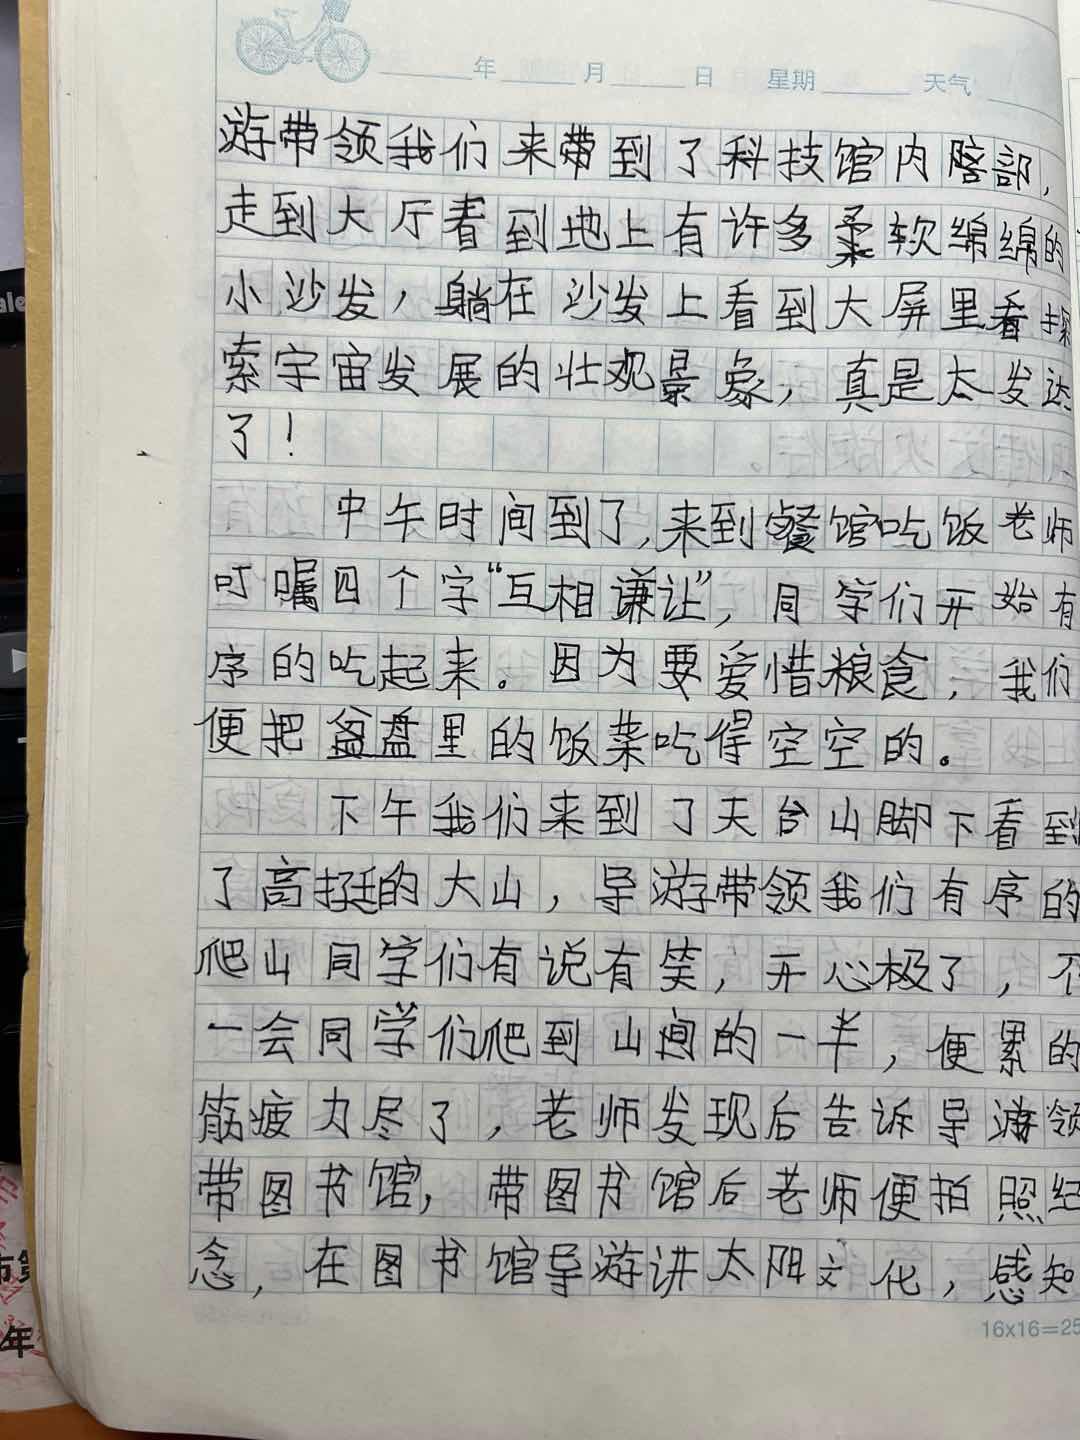 年 月 日 星期 天气
游带领我们来带到了科技馆内部，
走到大厅看到地上有许多柔软绵绵的
小沙发，躺在沙发上看到大屏里看探
索宇宙发展的壮观景象，真是太发达
了！
中午时间到了，来到餐馆吃饭老师
叮嘱四个字“互相谦让”，同学们开始有
序的吃起来。因为要爱惜粮食，我们
便把盆盘里的饭菜吃得空空的。
下午我们来到了天台山脚下看到
了高挺的大山，导游带领我们有序的
爬山同学们有说有笑，开心极了，不
一会同学们爬到山间的一半，便累的
筋疲力尽了，老师发现后告诉导游领
带图书馆，带图书馆后老师便拍照纪
念，在图书馆导游讲太阳文化，感知
16x16=25